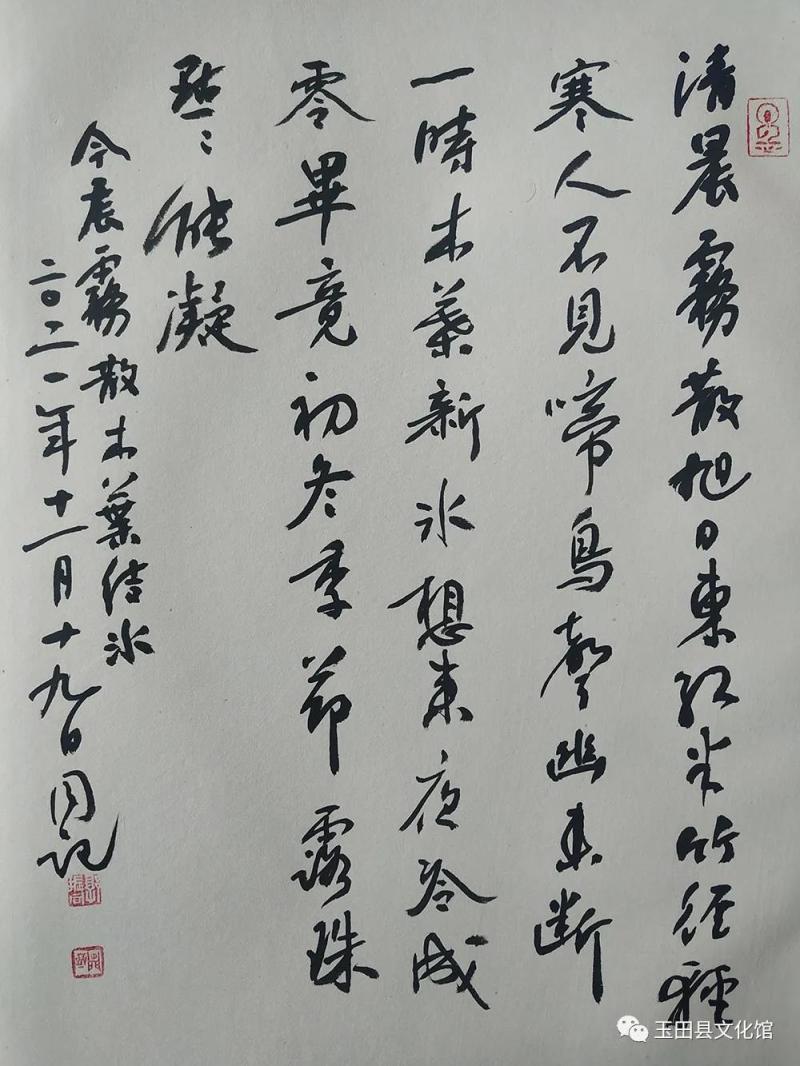 清晨霧散旭日東紅半竹径輕
寒人不見啼鳥聲幽未断
一時木葉新冰想来夜冷成
零畢竟初冬季節露珠
點點能凝
今晨霧散木葉结冰
二〇二一年十一月十九日记
玉田县文化馆